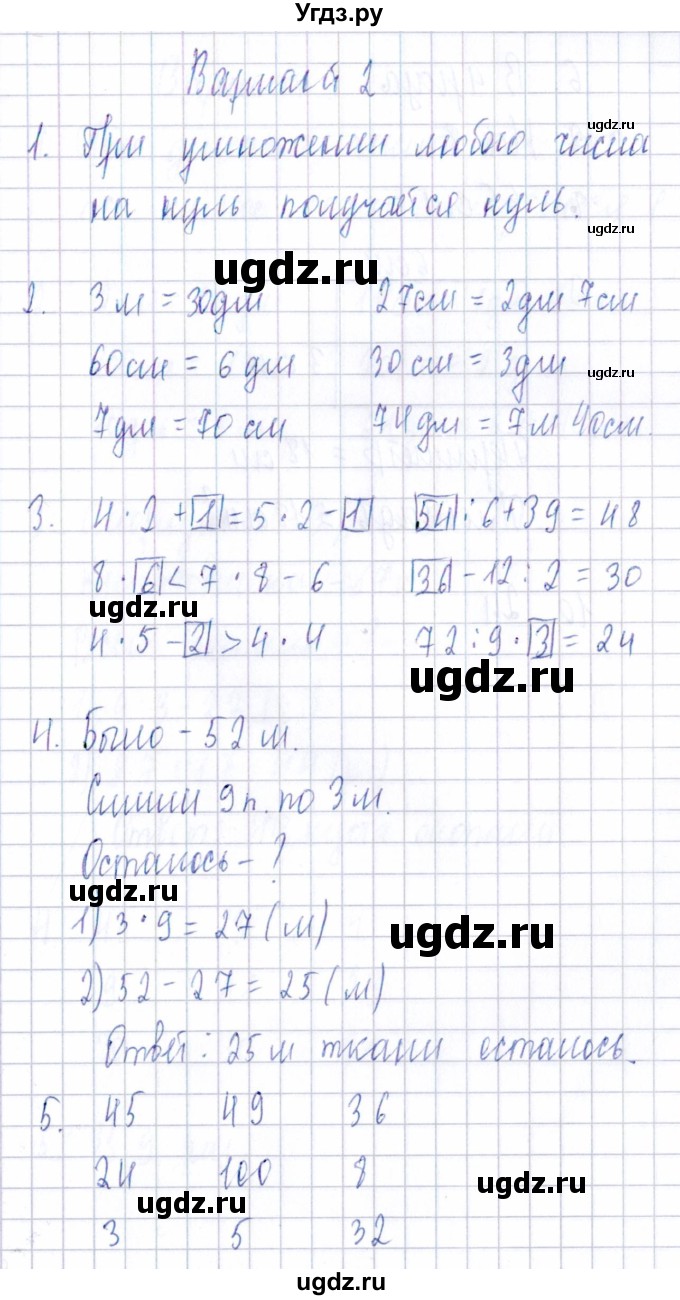 Угдз.ру
Вариант 2
ugdz.ru
1. При умножении любого числа
на нуль получается нуль.
ugdz.ru
ugdz.ru
2. 3 м = 30дм 27см = 2дм 7см
60см = 6 дм 30 см = 3дм
ugdz.ru
7дм = 70 см 74дм = 7м 40см.
3. 4 · 2 + 1 = 5 · 2 - 1 54 : 6 + 39 = 48
8 · 6 < 7 · 8 - 6 36 - 12 : 2 = 30
ugdz.ru
4 · 5 - 2 > 4 · 4 72 : 9 · 3 = 24
ugdz.ru
4. Было - 52 м.
Сшили 9 п. по 3 м.
Осталось - ?
ugdz.ru
1) 3 · 9 = 27 (м)
ugdz.ru
2) 52 - 27 = 25 (м)
Ответ: 25 м ткани осталось.
5. 45 49 36
24 100 8
ugdz.ru
ugdz.ru
3 5 32
ugdz.ru